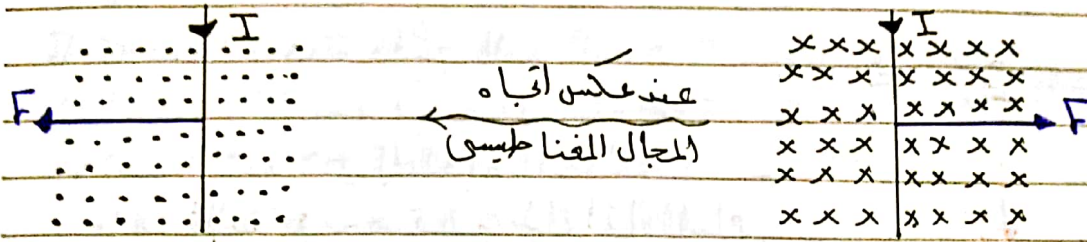 I
I
× × × × × × ×
× × × × × × ×
× × × × × × ×
× × × × × × ×
× × × × × × ×
× × × × × × ×
× × × × × × ×
عند عكس اتجاه
المجال المغناطيسى
F
F